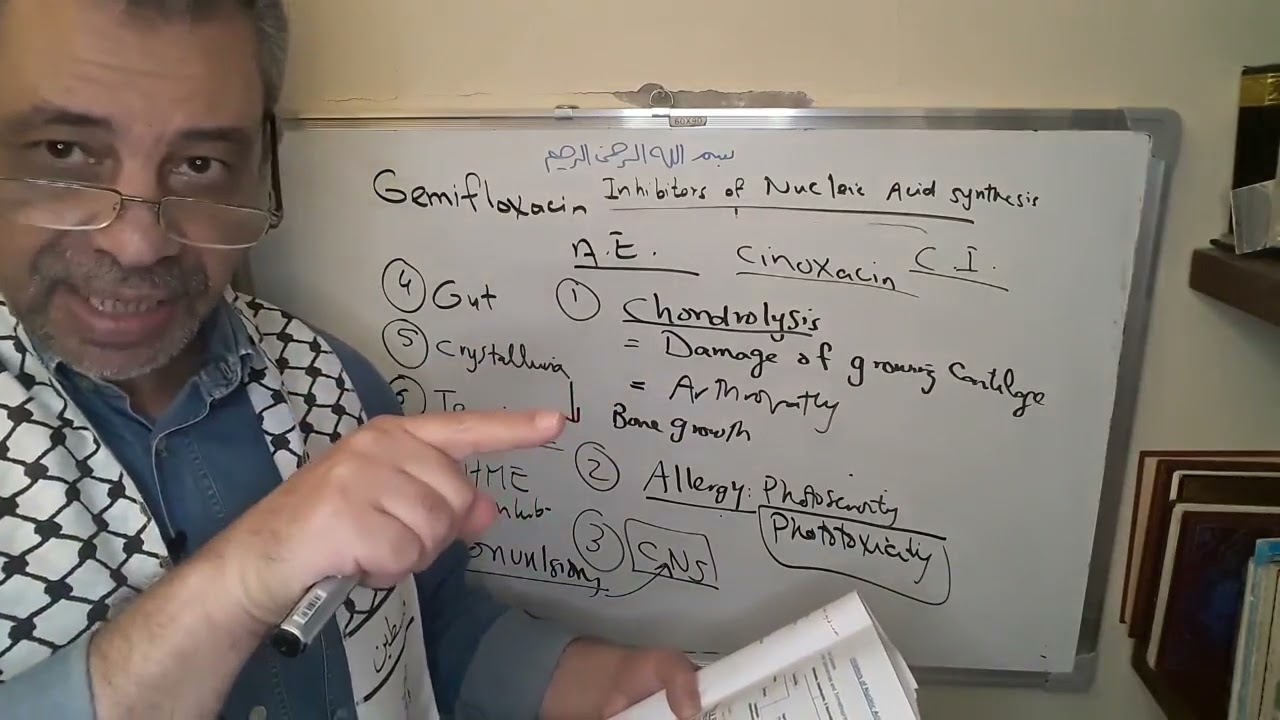 60X90
بسم الله الرحمن الرحيم
Gemifloxacin Inhibitors of Nucleic Acid synthesis
A.E. Cinoxacin C.I.
④ Gut
⑤ Crystalluria
① Chondrolysis
= Damage of growing Cartilage
= Arthropathy
Bone growth
② Allergy: Photosensitivity
Phototoxicity
③ CNS
HME
Inhib-
onvulsions
فلسطين